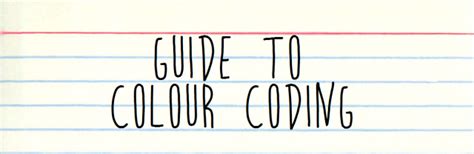 GUIDE TO
COLOUR CODING